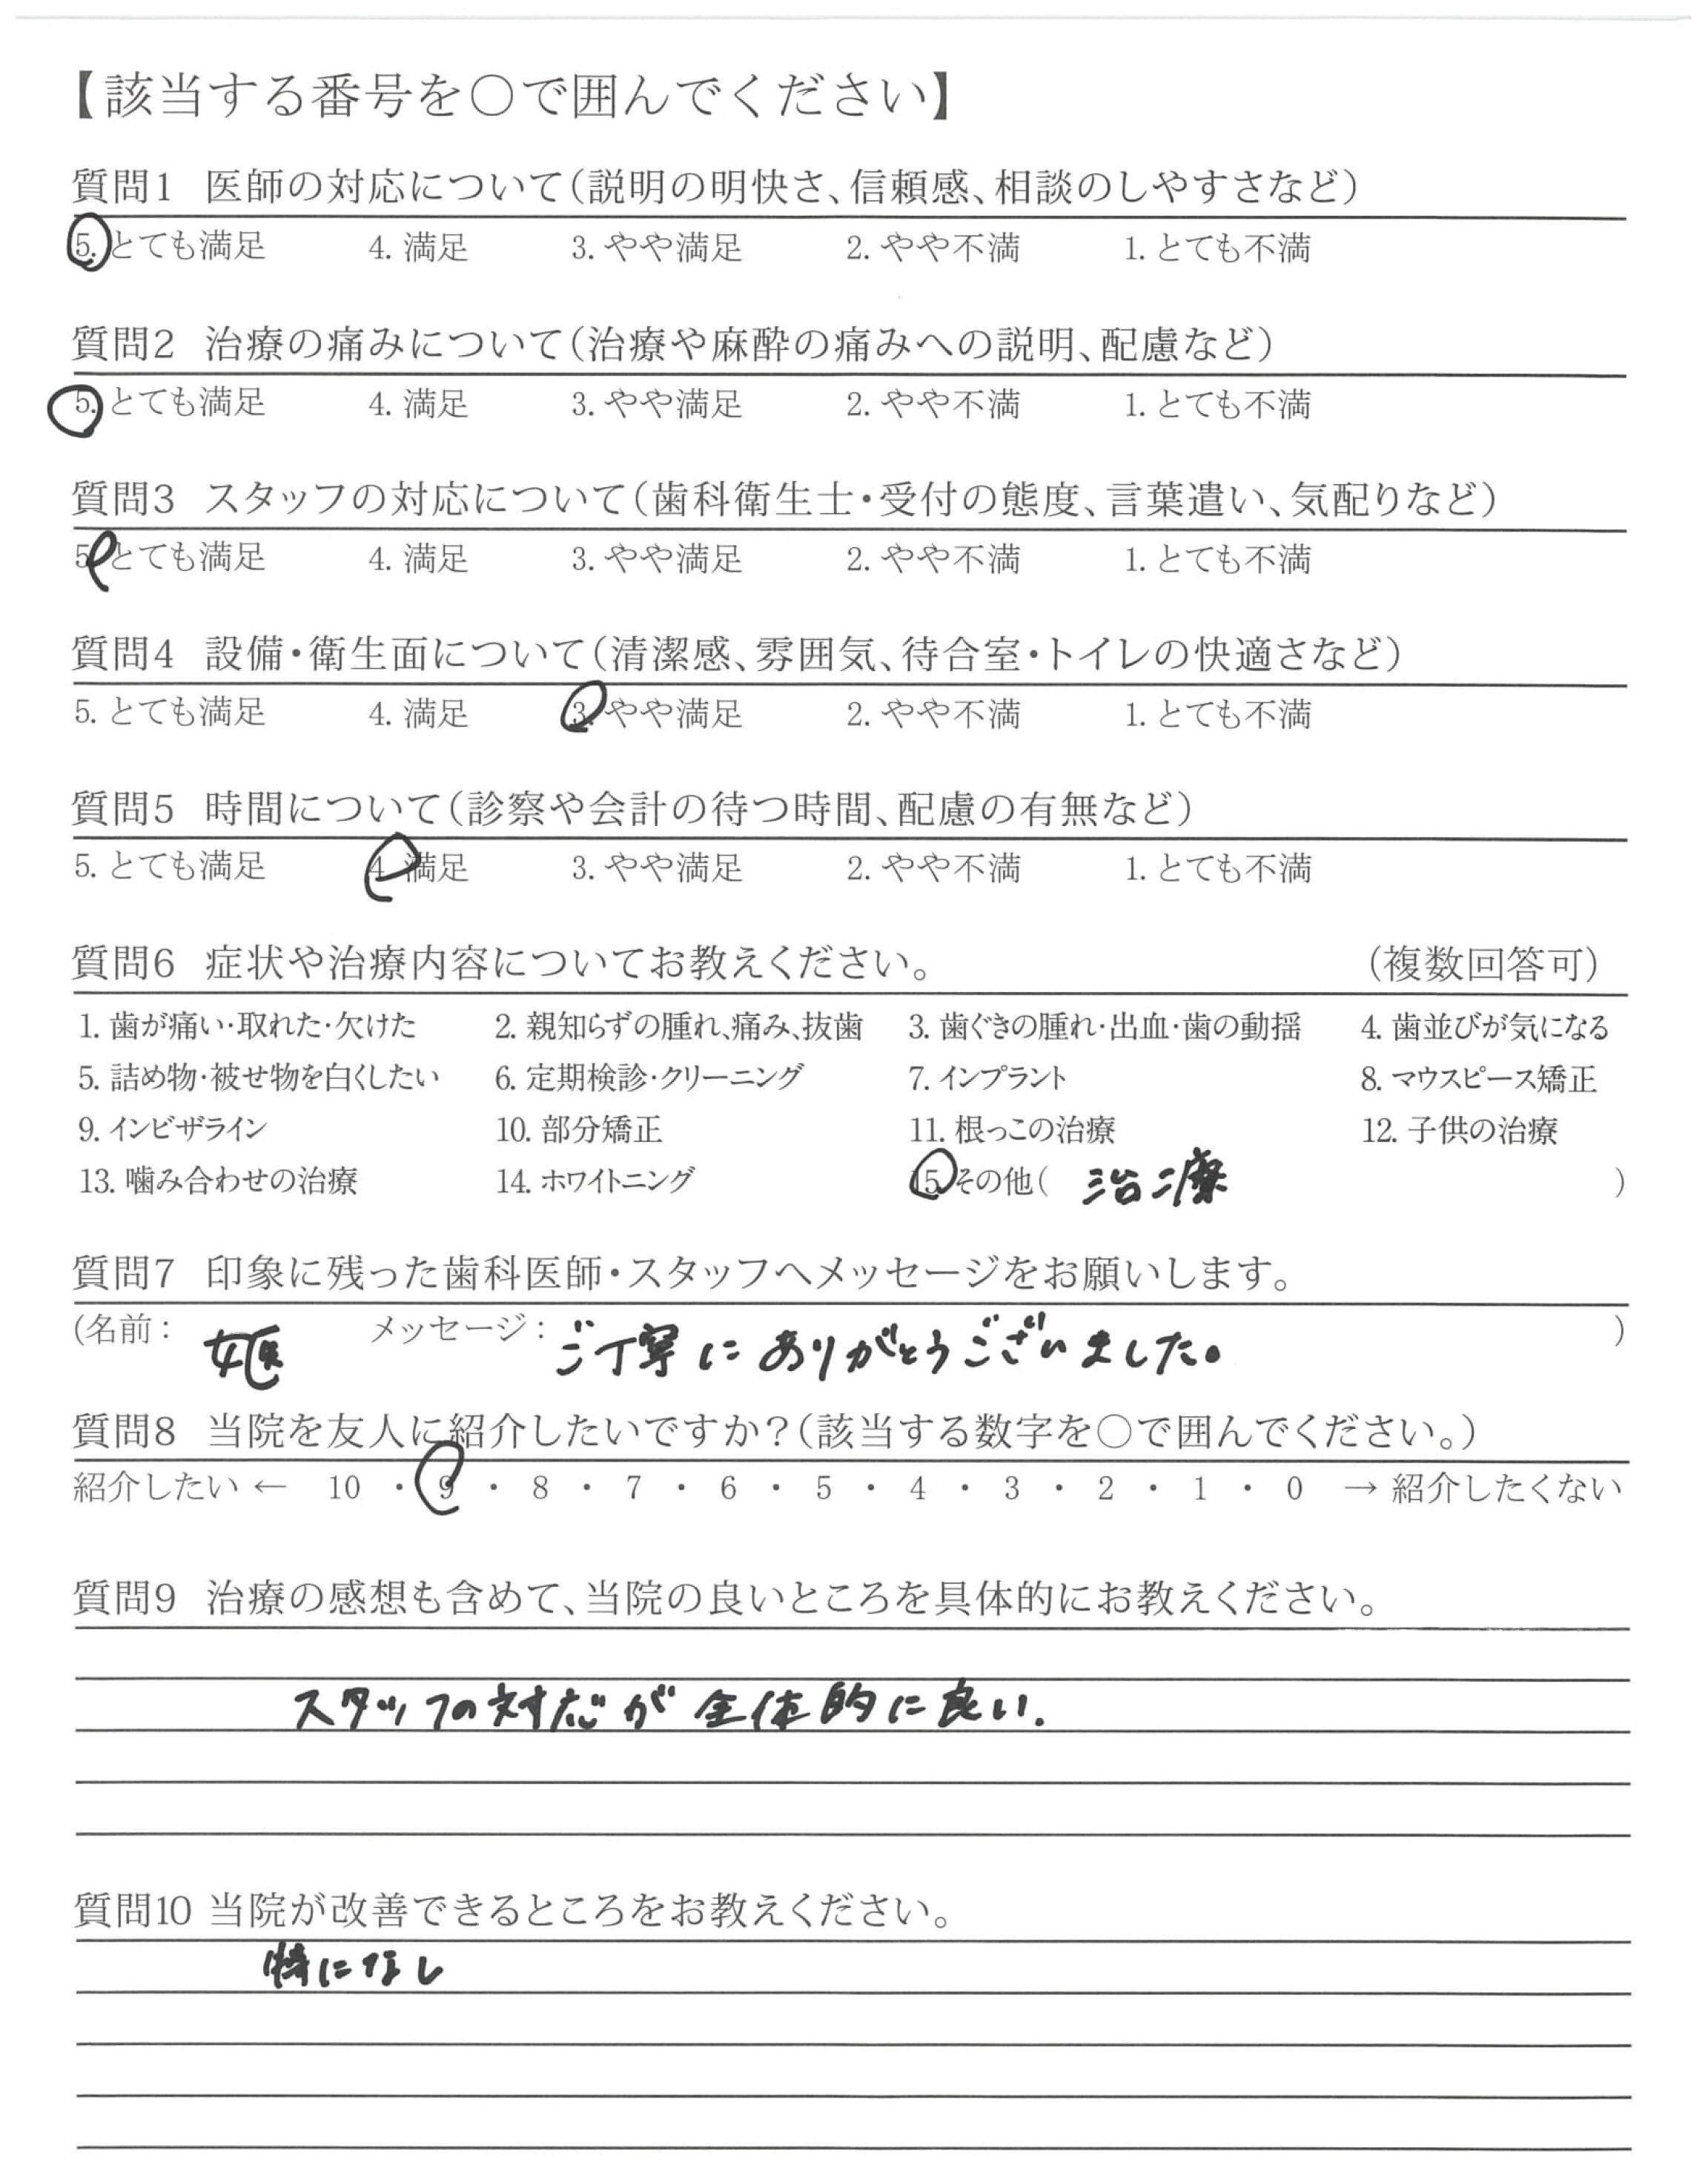 【該当する番号を○で囲んでください】
質問1 医師の対応について（説明の明快さ、信頼感、相談のしやすさなど）
5. とても満足 4. 満足 3. やや満足 2. やや不満 1. とても不満
質問2 治療の痛みについて（治療や麻酔の痛みへの説明、配慮など）
5. とても満足 4. 満足 3. やや満足 2. やや不満 1. とても不満
質問3 スタッフの対応について（歯科衛生士・受付の態度、言葉遣い、気配りなど）
5. とても満足 4. 満足 3. やや満足 2. やや不満 1. とても不満
質問4 設備・衛生面について（清潔感、雰囲気、待合室・トイレの快適さなど）
5. とても満足 4. 満足 3. やや満足 2. やや不満 1. とても不満
質問5 時間について（診察や会計の待つ時間、配慮の有無など）
5. とても満足 4. 満足 3. やや満足 2. やや不満 1. とても不満
質問6 症状や治療内容についてお教えください。 （複数回答可）
1. 歯が痛い・取れた・欠けた 2. 親知らずの腫れ、痛み、抜歯 3. 歯ぐきの腫れ・出血・歯の動揺 4. 歯並びが気になる
5. 詰め物・被せ物を白くしたい 6. 定期検診・クリーニング 7. インプラント 8. マウスピース矯正
9. インビザライン 10. 部分矯正 11. 根っこの治療 12. 子供の治療
13. 噛み合わせの治療 14. ホワイトニング 15. その他（ 治療 ）
質問7 印象に残った歯科医師・スタッフへメッセージをお願いします。
（名前： 女医 メッセージ： ご丁寧にありがとうございました。 ）
質問8 当院を友人に紹介したいですか？（該当する数字を○で囲んでください。）
紹介したい ← 10 ・ 9 ・ 8 ・ 7 ・ 6 ・ 5 ・ 4 ・ 3 ・ 2 ・ 1 ・ 0 → 紹介したくない
質問9 治療の感想も含めて、当院の良いところを具体的にお教えください。
スタッフの対応が全体的に良い.
質問10 当院が改善できるところをお教えください。
特になし